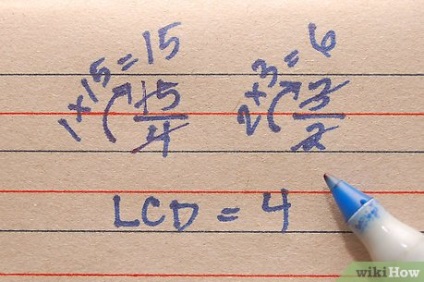 1 × 15 = 15
15
4
2 × 3 = 6
3
2
LCD = 4
wikiHow